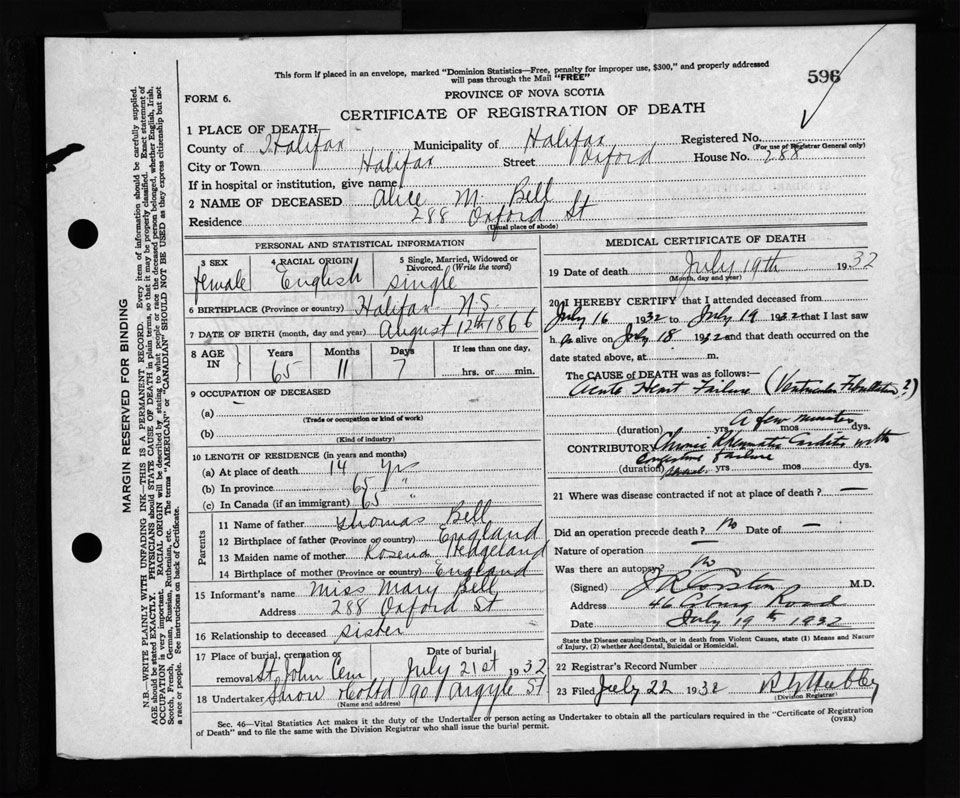 This form if placed in an envelope, marked "Dominion Statistics—Free, penalty for improper use, $300," and properly addressed
will pass through the Mail "FREE"
596
FORM 6.
PROVINCE OF NOVA SCOTIA
CERTIFICATE OF REGISTRATION OF DEATH
1 PLACE OF DEATH
County of Halifax Municipality of Halifax Registered No.
(For use of Registrar General only)
City or Town Halifax Street Oxford House No. 288
If in hospital or institution, give name
2 NAME OF DECEASED Alice M Bell
Residence 288 Oxford St
(Usual place of abode)
PERSONAL AND STATISTICAL INFORMATION
3 SEX 4 RACIAL ORIGIN 5 Single, Married, Widowed or
Divorced. (Write the word)
female English Single
6 BIRTHPLACE (Province or country) Halifax N.S.
7 DATE OF BIRTH (month, day and year) August 12th 1866
8 AGE IN Years Months Days If less than one day,
65 11 7 hrs. or min.
9 OCCUPATION OF DECEASED
(a)
(Trade or occupation or kind of work)
(b)
(Kind of industry)
10 LENGTH OF RESIDENCE (in years and months)
(a) At place of death 14 yrs
(b) In province 65 "
(c) In Canada (if an immigrant) 65 "
Parents
11 Name of father Thomas Bell
12 Birthplace of father (Province or country) England
13 Maiden name of mother Rosena Hedgeland
14 Birthplace of mother (Province or country) England
15 Informant's name Miss Mary Bell
Address 288 Oxford St
16 Relationship to deceased sister
17 Place of burial, cremation or Date of burial
removal St John Cem July 21st 1932
18 Undertaker Snow & Co Ltd 90 Argyle St
(Name and address)
MEDICAL CERTIFICATE OF DEATH
19 Date of death July 19th 1932
(Month, day and year)
20 I HEREBY CERTIFY that I attended deceased from
July 16 1932 to July 19 1932 that I last saw
h alive on July 18 1932 and that death occurred on the
date stated above, at m.
The CAUSE OF DEATH was as follows:—
Acute Heart Failure (Ventricular Fibrillation?)
A few minutes
(duration) yrs mos dys.
CONTRIBUTORY Chronic Rheumatic Carditis with
Congestive failure
(duration) yrs mos dys.
21 Where was disease contracted if not at place of death? —
Did an operation precede death? No Date of —
Nature of operation —
Was there an autopsy? No
(Signed) J R Corston M.D.
Address 46 Coburg Road
Date July 19th 1932
State the Disease causing Death, or in death from Violent Causes, state (1) Means and Nature
of Injury, (2) whether Accidental, Suicidal or Homicidal.
22 Registrar's Record Number
23 Filed July 22 1932
(Division Registrar)
Sec. 46—Vital Statistics Act makes it the duty of the Undertaker or person acting as Undertaker to obtain all the particulars required in the "Certificate of Registration
of Death" and to file the same with the Division Registrar who shall issue the burial permit. (OVER)
MARGIN RESERVED FOR BINDING
N.B.—WRITE PLAINLY WITH UNFADING INK—THIS IS A PERMANENT RECORD. Every item of information should be carefully supplied.
AGE should be stated EXACTLY. PHYSICIANS should STATE CAUSE OF DEATH in plain terms, so that it may be properly classified. Exact statement of
OCCUPATION is very important. RACIAL ORIGIN will be described by stating to what people or race the deceased person belonged, whether English, Irish,
Scotch, French, German, Russian, Ruthenian, etc. The terms "AMERICAN" or "CANADIAN" SHOULD NOT BE USED as they express citizenship but not
a race or people. See instructions on back of Certificate.